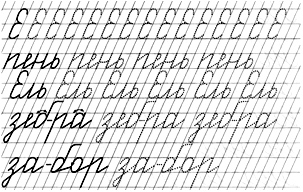 Е Е Е Е Е Е Е Е Е Е Е Е Е Е
пень пень пень пень
Ель Ель Ель Ель Ель Ель
зебра зебра зебра
за-бор за-бор